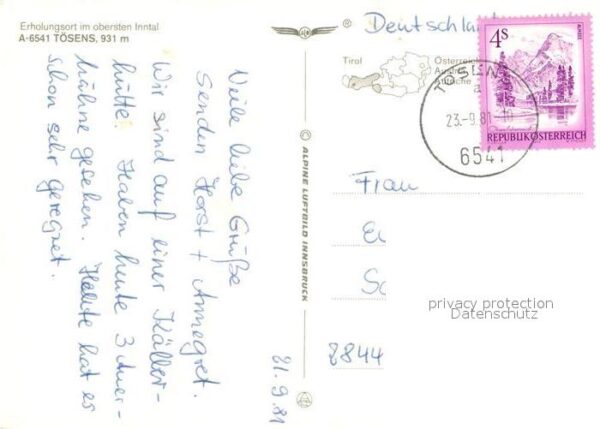 Erholungsort im obersten Inntal
A-6541 TÖSENS, 931 m
Viele liebe Grüße
Senden Horst + Annegret.
Wir sind auf einer Käller-
hütte. Haben heute 3 Auer-
hühne gesehen. Heute hat es
schon sehr geregnet.
21.9.81
© ALPINE LUFTBILD INNSBRUCK
®
Tirol
Österreich
Deutschland
4S
ALMSEE
REPUBLIK ÖSTERREICH
23.-9.81
6541
Frau
8844
privacy protection
Datenschutz